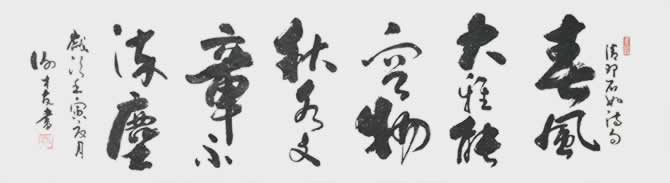 清鄧石如詩句
春風
大雅能
容物
秋水文
章不
染塵
歲次壬寅夏月
書